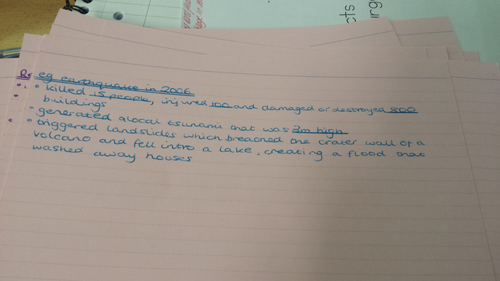 eg earthquake in 2006
• killed 15 people, injured 100 and damaged or destroyed 800
buildings
• generated a local tsunami that was 3m high
• triggered landslides which breached the crater wall of a
volcano and fell into a lake, creating a flood that
washed away houses